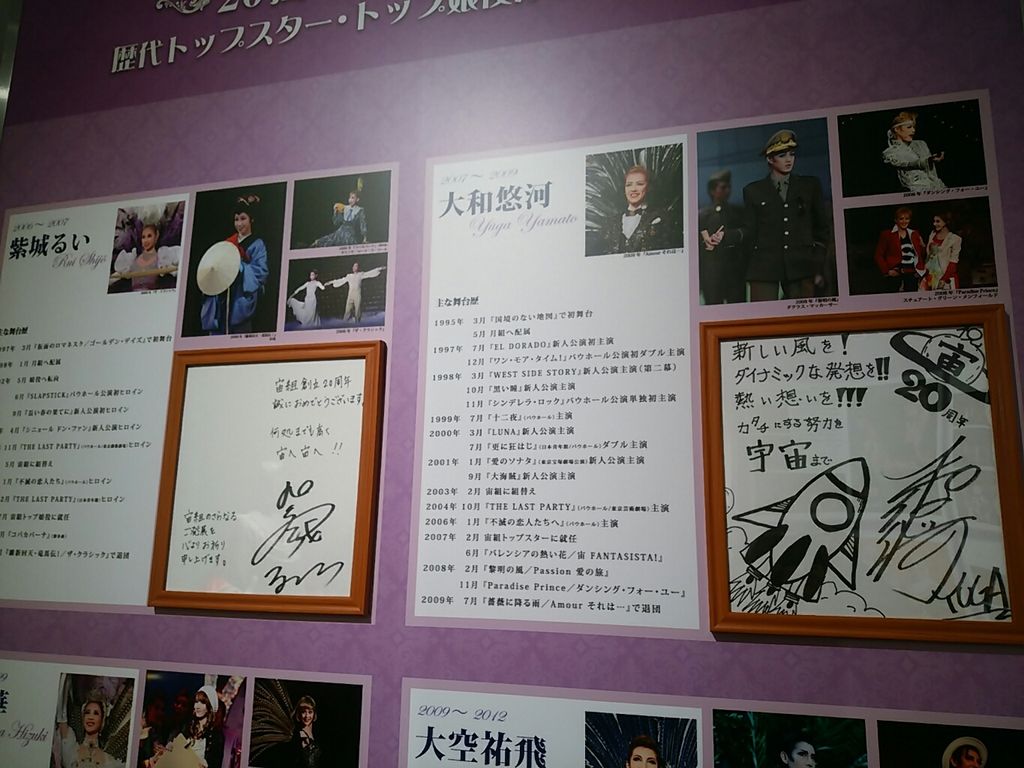 歴代トップスター・トップ娘役
2006〜2007
紫城るい
Rui Shijo
な舞台歴
3月『仮面のロマネスク/ゴールデン・デイズ』で初舞台
1月 月組へ配属
5月 娘役へ転向
6月『SLAPSTICK』バウホール公演初ヒロイン
9月『長い春の果てに』新人公演初ヒロイン
4月『シニョール ドン・ファン』新人公演ヒロイン
11月『THE LAST PARTY』
5月 宙組に組替え
1月『不滅の恋人たち』(バウホール)ヒロイン
2月『THE LAST PARTY』(日本青年館)ヒロイン
宙組トップ娘役に就任
月『コパカバーナ』(博多座)
月『維新回天・竜馬伝!/ザ・クラシック』で退団
宙組創立20周年
誠におめでとうございます
何処までも高く
宙へ宙へ!!
宙組のさらなる
ご発展を
心よりお祈り
申し上げます。
2007〜2009
大和悠河
Yuga Yamato
2009年『Amour それは…』
主な舞台歴
1995年 3月『国境のない地図』で初舞台
5月 月組へ配属
1997年 7月『EL DORADO』新人公演初主演
12月『ワン・モア・タイム!』バウホール公演初ダブル主演
1998年 3月『WEST SIDE STORY』新人公演主演(第二幕)
10月『黒い瞳』新人公演主演
11月『シンデレラ・ロック』バウホール公演単独初主演
1999年 7月『十二夜』(バウホール)主演
2000年 3月『LUNA』新人公演主演
7月『更に狂はじ』(日本青年館/バウホール)ダブル主演
2001年 1月『愛のソナタ』(東京宝塚劇場公演)新人公演主演
9月『大海賊』新人公演主演
2003年 2月 宙組に組替え
2004年 10月『THE LAST PARTY』(バウホール/東京芸術劇場)主演
2006年 1月『不滅の恋人たちへ』(バウホール)主演
2007年 2月 宙組トップスターに就任
6月『バレンシアの熱い花/宙 FANTASISTA!』
2008年 2月『黎明の風/Passion 愛の旅』
11月『Paradise Prince/ダンシング・フォー・ユー』
2009年 7月『薔薇に降る雨/Amour それは…』で退団
2008年『黎明の風』
ダグラス・マッカーサー
2008年『ダンシング・フォー・ユー』
2008年『Paradise Prince』
スチュアート・グリーン・メンフィールド
新しい風を!
ダイナミックな発想を!!
熱い想いを!!!
カタチにする努力を
宇宙まで
20
宙
20
周年
YUGA
Hizuki
2009〜2012
大空祐飛